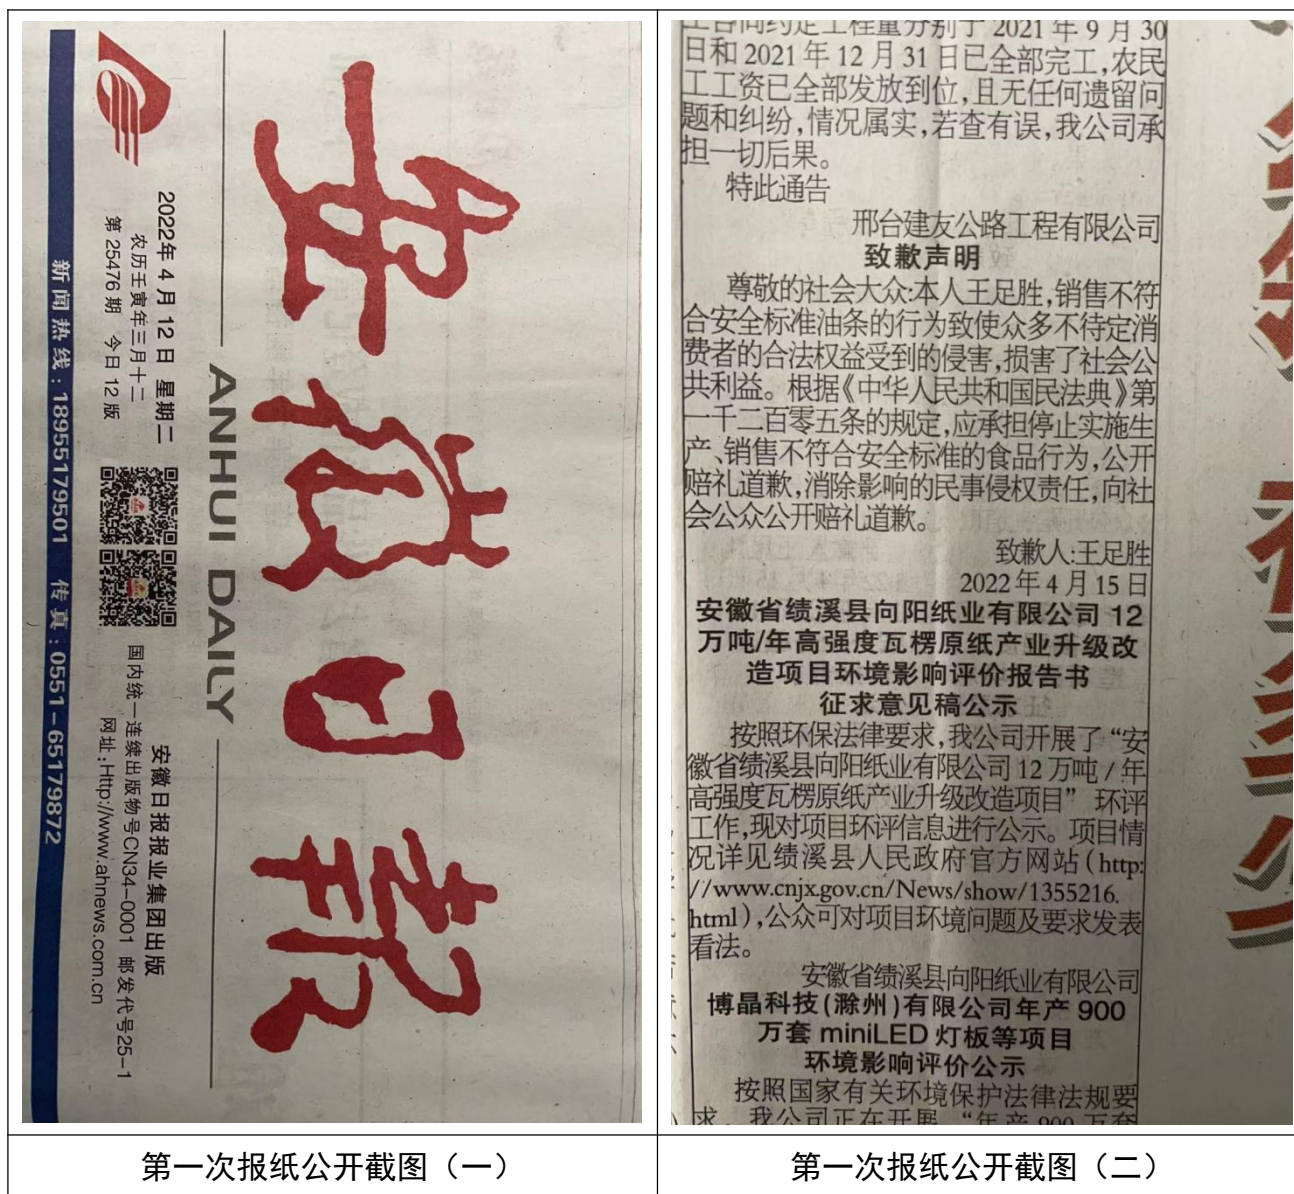 安徽日报
ANHUI DAILY
2022年4月12日 星期二
农历壬寅年三月十二
第25476期 今日12版
安徽日报报业集团出版
国内统一连续出版物号CN34-0001 邮发代号25-1
网址:Http://www.ahnews.com.cn
新闻热线:18955179501 传真:0551-65179872
工合同约定工程量分别于2021年9月30
日和2021年12月31日已全部完工,农民
工工资已全部发放到位,且无任何遗留问
题和纠纷,情况属实,若查有误,我公司承
担一切后果。
特此通告
邢台建友公路工程有限公司
致歉声明
尊敬的社会大众:本人王足胜,销售不符
合安全标准油条的行为致使众多不待定消
费者的合法权益受到的侵害,损害了社会公
共利益。根据《中华人民共和国民法典》第
一千二百零五条的规定,应承担停止实施生
产、销售不符合安全标准的食品行为,公开
赔礼道歉,消除影响的民事侵权责任,向社
会公众公开赔礼道歉。
致歉人:王足胜
2022年4月15日
安徽省绩溪县向阳纸业有限公司12
万吨/年高强度瓦楞原纸产业升级改
造项目环境影响评价报告书
征求意见稿公示
按照环保法律要求,我公司开展了“安
徽省绩溪县向阳纸业有限公司12万吨/年
高强度瓦楞原纸产业升级改造项目”环评
工作,现对项目环评信息进行公示。项目情
况详见绩溪县人民政府官方网站(http:
//www.cnjx.gov.cn/News/show/1355216.
html),公众可对项目环境问题及要求发表
看法。
安徽省绩溪县向阳纸业有限公司
博晶科技(滁州)有限公司年产900
万套miniLED灯板等项目
环境影响评价公示
按照国家有关环境保护法律法规要
求,我公司正在开展“年产900万套
第一次报纸公开截图（一）
第一次报纸公开截图（二）